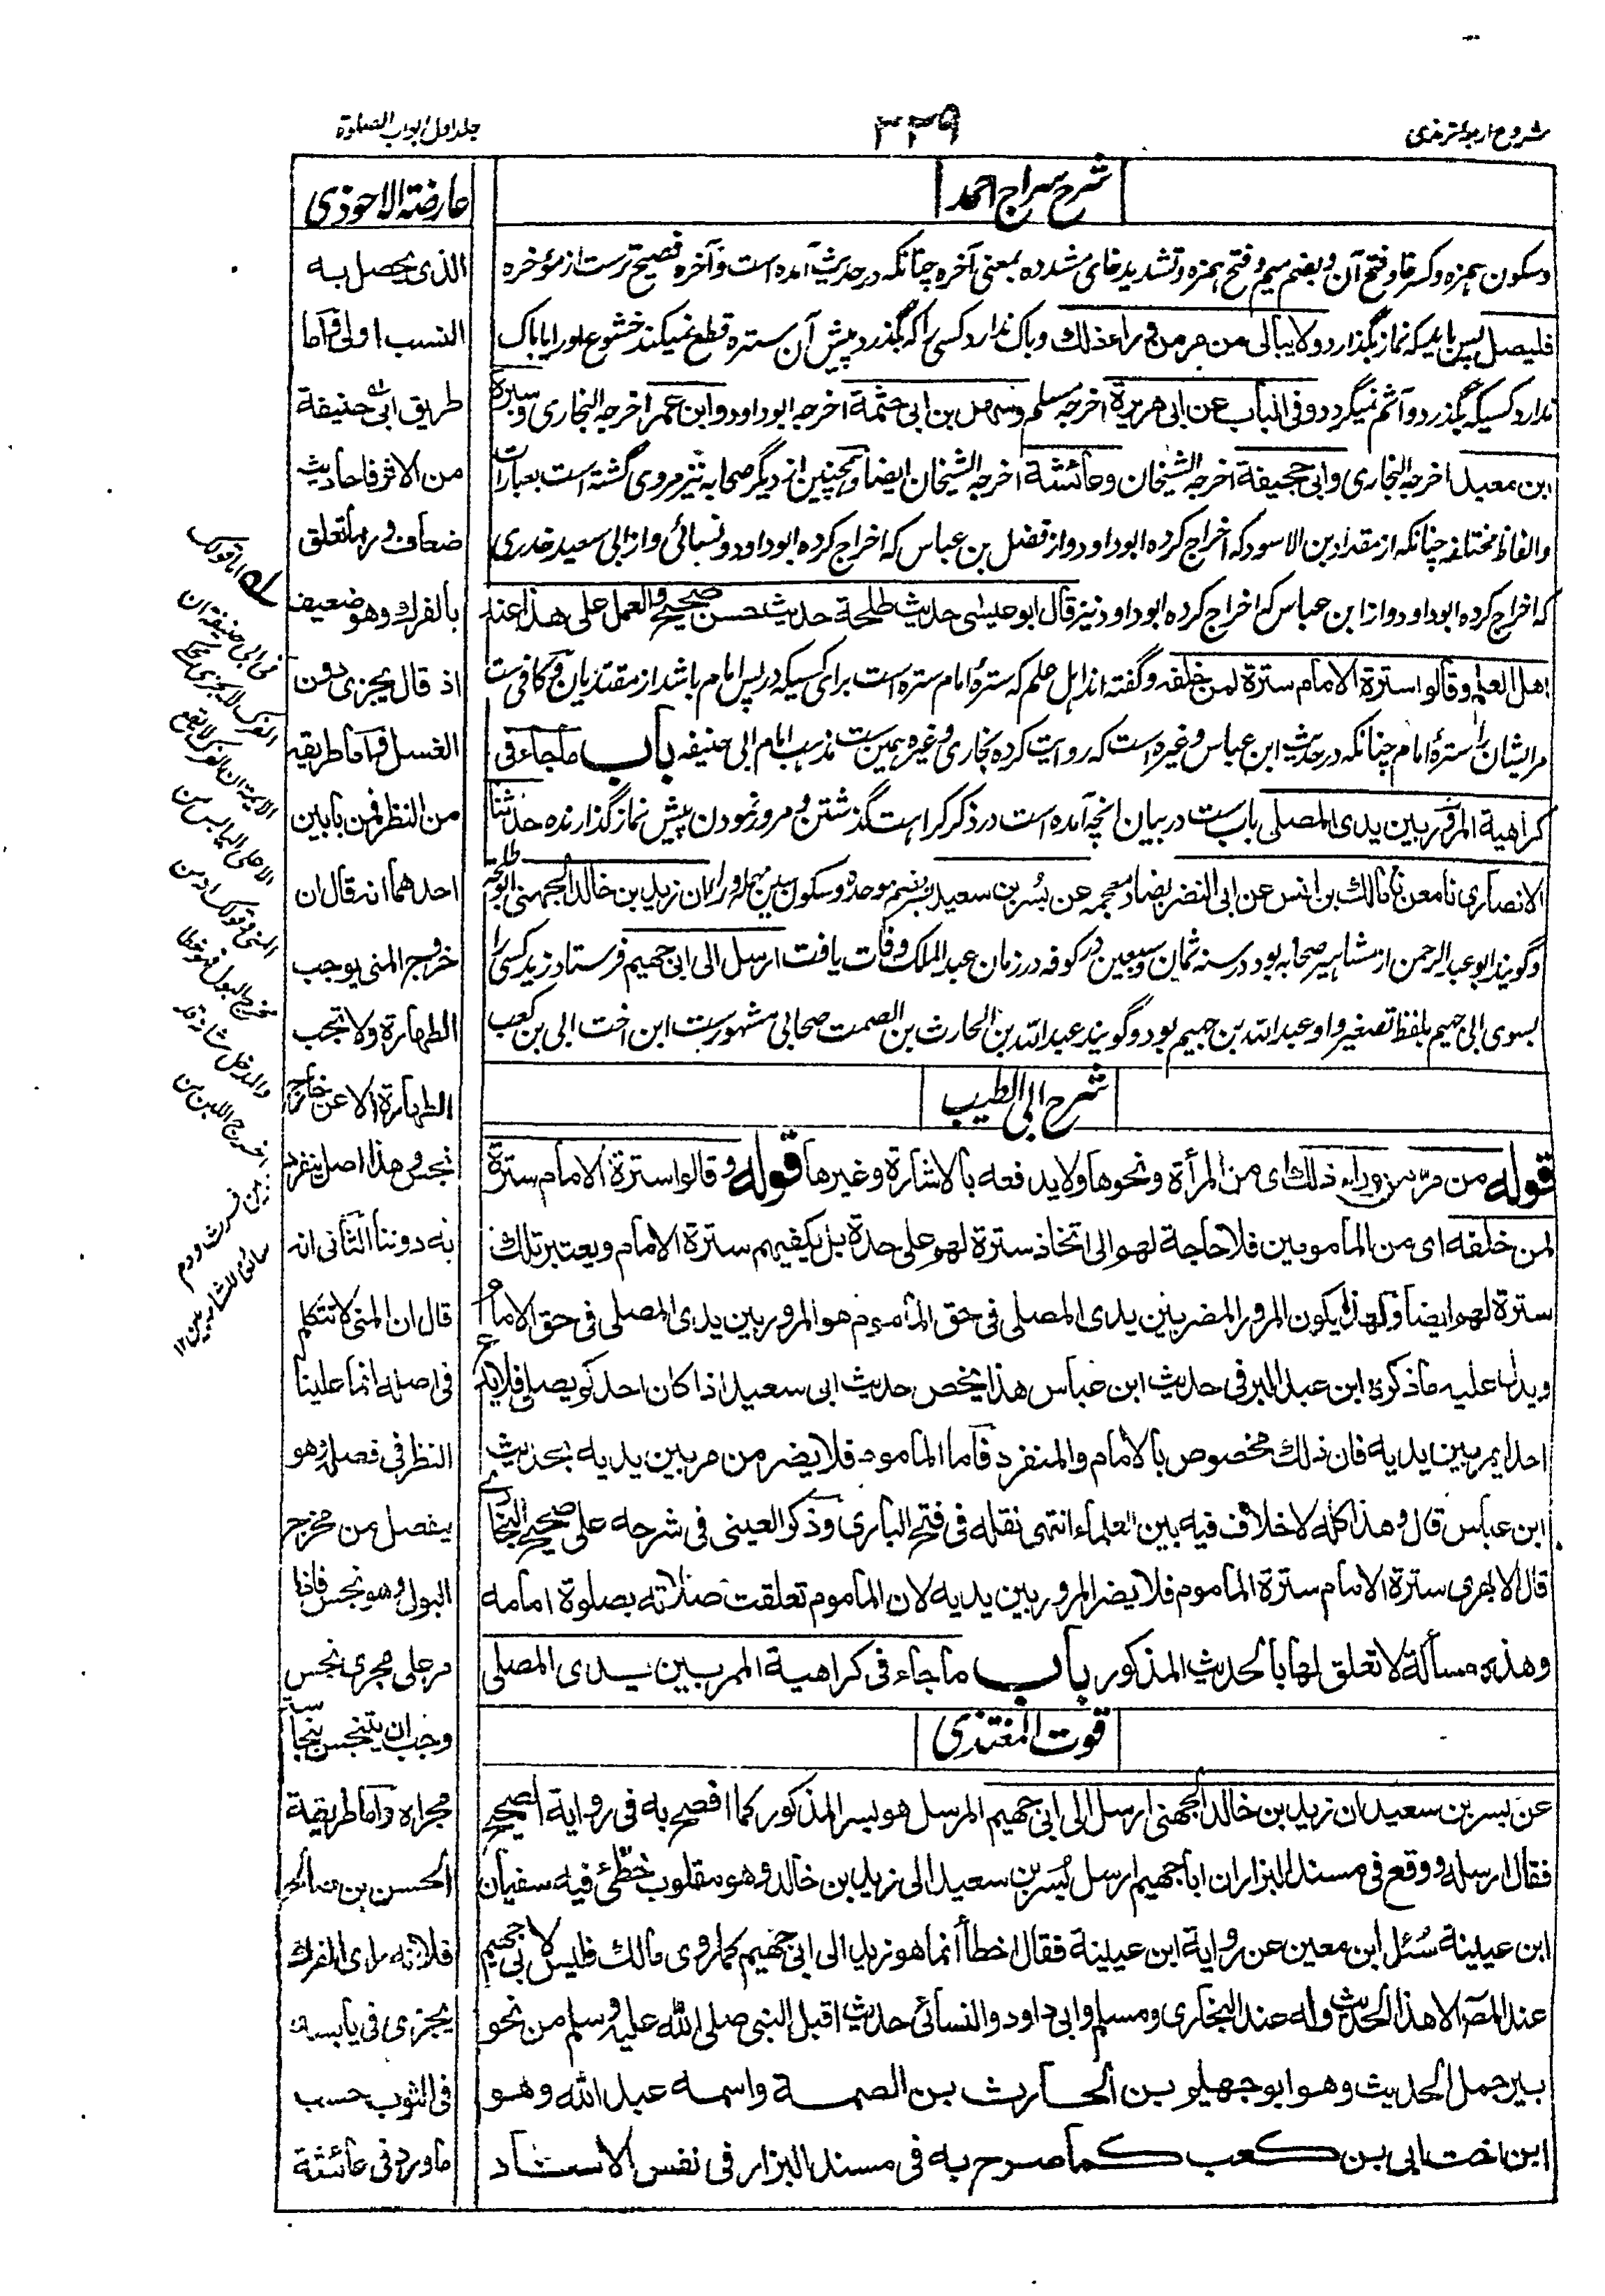 شروح اربعہ ترمذی
٣٣٩
جلد اول ابواب الصلوة
شرح سراج احمد
وسکون ہمزہ وکسر خا وفتح آن وبضم میم وفتح ہمزہ وتشدید خای مشددہ بمعنی آخرہ چنانکہ در حدیث آمدہ است وآخرہ فصیح ترست از مؤخرہ
فلیصل پس باید کہ نماز بگذارد ولا یبالی من مر من وراء ذلك وباک ندارد کسی را کہ بگذرد پیش آن سترہ قطع نمیکند خشوع اورا یا باک
ندارد کسیکہ بگذرد وآثم نمیگردد وفی الباب عن ابی هریرة اخرجہ مسلم وسهل بن ابی حثمة اخرجہ ابوداود وابن عمر اخرجہ البخاری وسبرة
ابن معبد اخرجہ البخاری وابی جحیفة اخرجہ الشیخان وعائشة اخرجہ الشیخان ایضا وہمچنین از دیگر صحابہ نیز مروی گشتہ است بعبارات
والفاظ مختلفہ چنانکہ از مقداد بن الاسود کہ اخراج کردہ ابوداود واز فضل بن عباس کہ اخراج کردہ ابوداود ونسائی واز ابی سعید خدری
کہ اخراج کردہ ابوداود واز ابن عباس کہ اخراج کردہ ابوداود نیز قال ابو عیسی حدیث طلحة حدیث حسن صحیح والعمل علی هذا عند
اهل العلم وقالوا سترة الامام سترة لمن خلفه وگفتہ اند اہل علم کہ سترۂ امام سترہ است برای کسیکہ در پس امام باشد از مقتدیان وکافی ست
مر ایشان را سترۂ امام چنانکہ در حدیث ابن عباس وغیرہ است کہ روایت کردہ بخاری وغیرہ ہمین ست مذہب امام ابی حنیفہ باب ما جاء فی
کراهیة المرور بین یدی المصلی باب ست در بیان انچہ آمدہ است در ذکر کراہت گذشتن ومرور نمودن پیش نماز گذارندہ حدثنا
الانصاری نا معن نا مالك بن انس عن ابی النضر بضاد معجمہ عن بُسر بن سعید بسر بضم موحدہ وسکون سین مہملہ وراء ان زید بن خالد الجهنی ابو طلحہ
وگویند ابو عبد الرحمن از مشاہیر صحابہ بود در سنہ ثمان وسبعین در کوفہ در زمان عبد الملک وفات یافت ارسل الی ابی جهیم فرستاد زید کسی را
بسوی ابی جہیم بلفظ تصغیر واو عبد اللہ بن جہیم بود وگویند عبد اللہ بن الحارث بن الصمت صحابی مشہورست ابن اخت ابی بن کعب
شرح ابی الطیب
قوله من مرّ من وراء ذلك ای من المرأة ونحوها ولا یدفعه بالاشارة وغیرها قوله وقالوا سترة الامام سترة
لمن خلفه ای من المامومین فلا حاجة لهم الی اتخاذ سترة لهم علی حدة بل یکفیهم سترة الامام ویعتبر تلك
سترة لهم ایضا ولهذا یکون المرور المضر بین یدی المصلی فی حق الماموم هو المرور بین یدی المصلی فی حق الامام
ویدل علیه ما ذکره ابن عبد البر فی حدیث ابن عباس هذا یخص حدیث ابی سعید اذا کان احدکم یصلی فلا یدع
احدا یمر بین یدیه فان ذلك مخصوص بالامام والمنفرد فاما الماموم فلا یضر من مر بین یدیه بحدیث
ابن عباس قال وهذا کله لا خلاف فیه بین العلماء انتهی نقله فی فتح الباری وذکر العینی فی شرحه علی صحیح البخاری
قال الابهری سترة الامام سترة الماموم فلا یضر المرور بین یدیه لان الماموم تعلقت صلاته بصلوة امامه
وهذه مسألة لا تعلق لها بالحدیث المذکور باب ما جاء فی کراهیة الممر بین یدی المصلی
قوت المغتذی
عن بسر بن سعید ان زید بن خالد الجهنی ارسل الی ابی جهیم المرسل هو بسر المذکور کما افصح به فی روایة الصحیح
فقال ارسله ووقع فی مسند البزار ان ابا جهیم ارسل بُسر بن سعید الی زید بن خالد وهو مقلوب خطّئ فیه سفیان
ابن عیینة سُئل ابن معین عن روایة ابن عیینة فقال اخطأ انما هو زید الی ابی جهیم کما روی مالك فلیس لابی جهیم
عند المصّ الا هذا الحدیث وله عند البخاری ومسلم وابی داود والنسائی حدیث اقبل النبی صلی الله علیه وسلم من نحو
بیر جمل الحدیث وهو ابو جهیم بن الحارث بن الصمة واسمه عبد الله وهو
ابن اخت ابی بن کعب کما صرح به فی مسند البزار فی نفس الاسناد
عارضة الاحوذی
الذی یحصل به
النسب اولی واما
طریق ابی حنیفة
من الاثر فاحادیث
ضعاف وربما تعلق
بالفرك وهو ضعیف
اذ قال یجزی دون
الغسل واما طریقه
من النظر فمن بابین
احدهما انه قال ان
خروج المنی یوجب
الطهارة ولا تجب
الطهارة الا عن خارج
نجس وهذا اصل ینفرد
به دوننا الثانی انه
قال ان المنی لا نتکلم
فی اصله انما علینا
النظر فی فصله وهو
ینفصل من مخرج
البول وهو نجس فاذا
مر علی مجری نجس
وجب ان یتنجس بنجاسة
مجراه واما طریقة
الحسن بن صالح
فلانه رای الفرك
یجزی فی یابسه
فی الثوب حسب
ما ورد فی عائشة